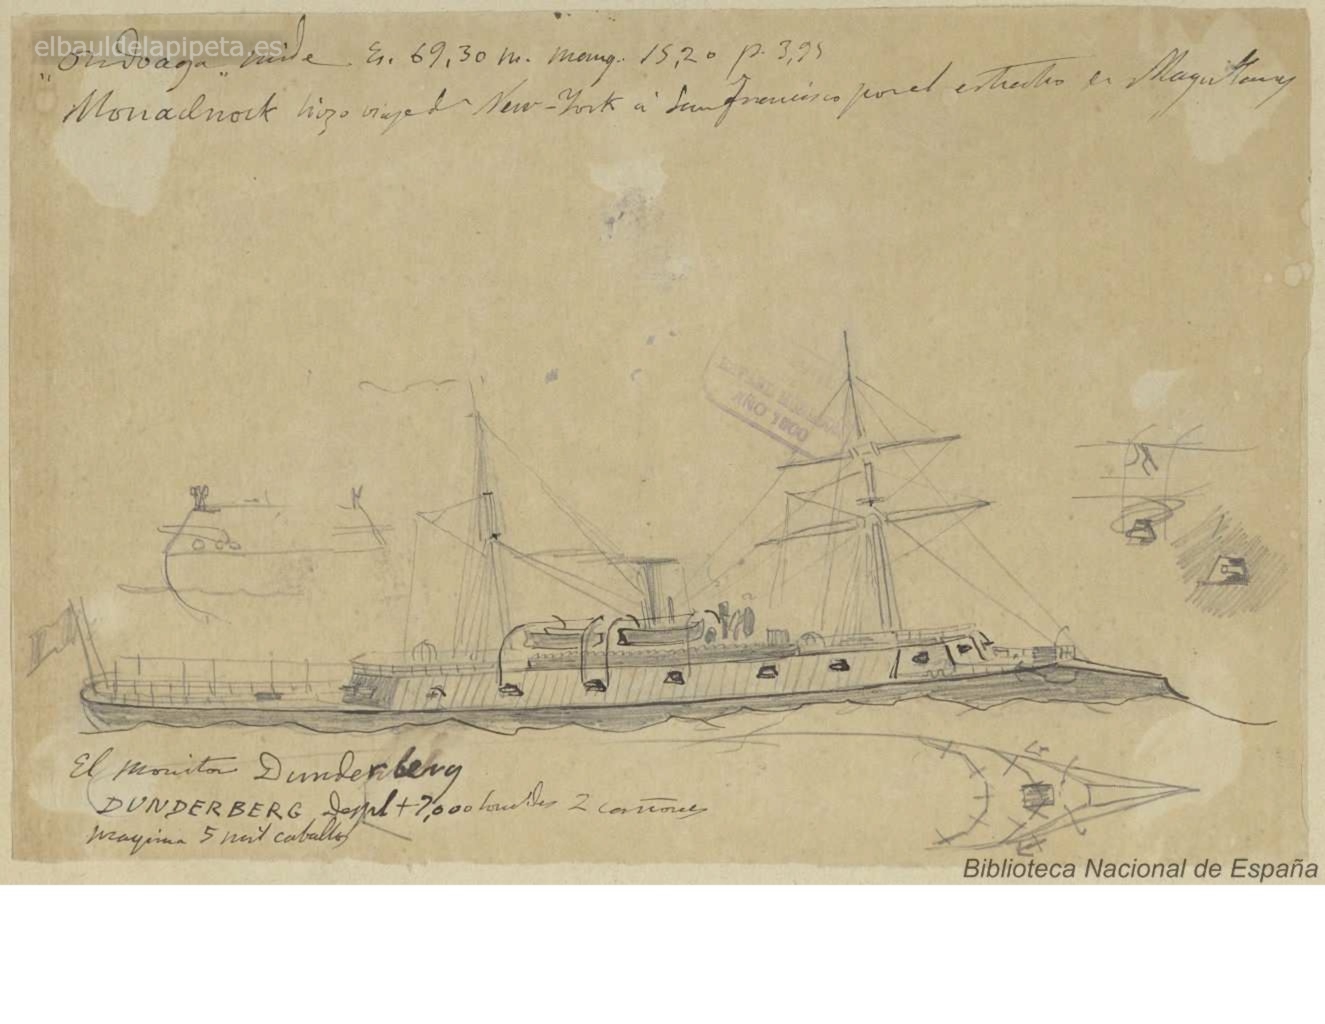 elbauldelapipeta.es
"Ondoaga" mide Es. 69,30 m. mang. 15,20 p. 3,95
Monadnock hizo viaje de New-York á San Francisco por el estrecho de Magallanes
AÑO 1900
El monitor Dunderberg
DUNDERBERG despl + 7,000 toneldes 2 cañones
maquina 5 mil caballos
Biblioteca Nacional de España